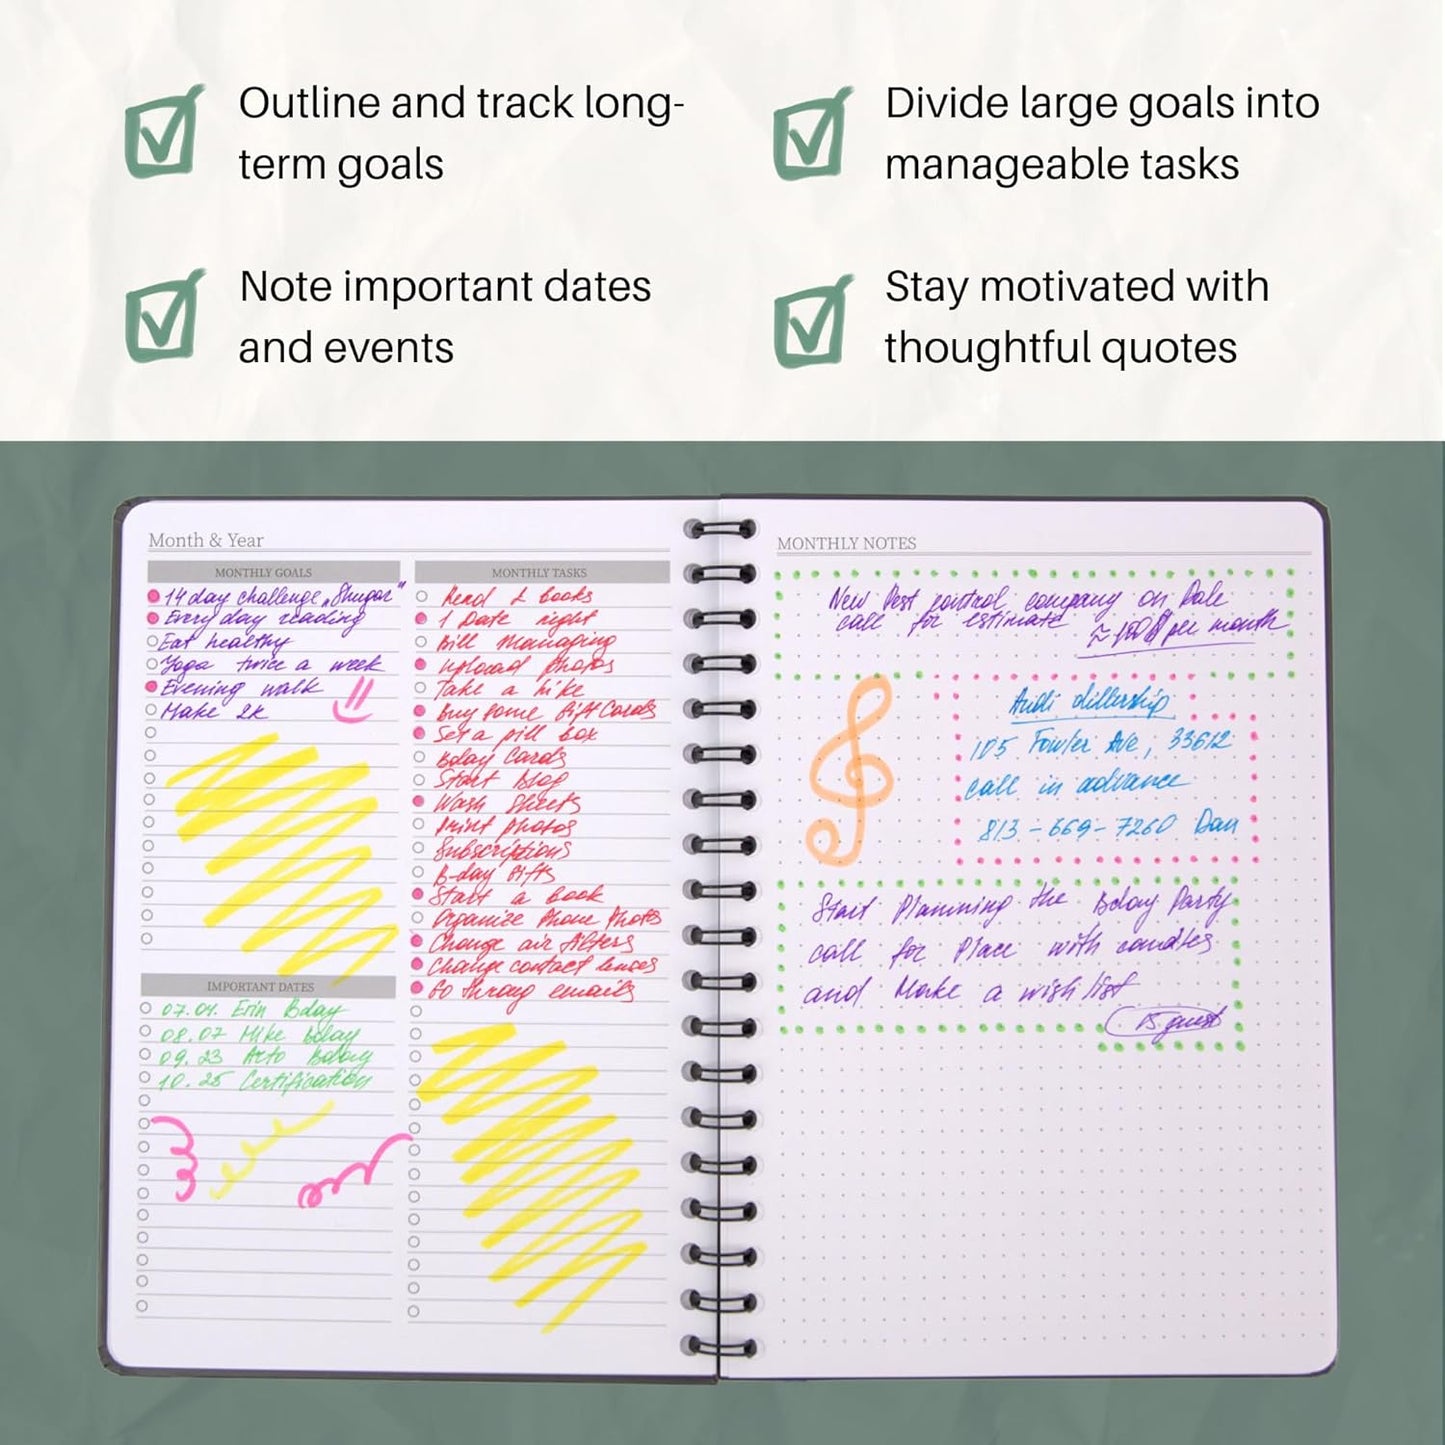 Outline and track long-
term goals
Divide large goals into
manageable tasks
Note important dates
and events
Stay motivated with
thoughtful quotes
Month & Year
MONTHLY GOALS
14 day challenge „Shugar"
Every day reading
Eat healthy
Yoga twice a week
Evening walk
Make 2k
IMPORTANT DATES
07.04. Erin Bday
08.07 Mike Bday
09.23 Arto Bday
10.25 Certification
MONTHLY TASKS
Read 2 books
1 Date night
Bill Managing
Upload photos
Take a hike
Buy some Gift Cards
Set a pill box
Bday Cards
Start Blog
Wash Sheets
Print photos
Subscriptions
B-day Gifts
Start a book
Organize Phone Photos
Change air filters
Change contact lenses
Go throug emails
MONTHLY NOTES
New Pest control company on Dale
call for estimate
≈100$ per month
Audi dillership
105 Fowler Ave, 33612
call in advance
813-669-7260 Dan
Start Planning the Bday Party
call for Place with candles
and Make a wish list
15 guest